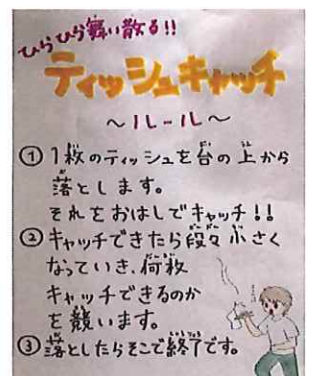 ひらひら舞い散る!!
ティッシュキャッチ
～ルール～
① 1枚のティッシュを台の上から
落とします。
それをおはしでキャッチ!!
② キャッチできたら段々小さく
なっていき、何枚
キャッチできるのか
を競います。
③ 落としたらそこで終了です。